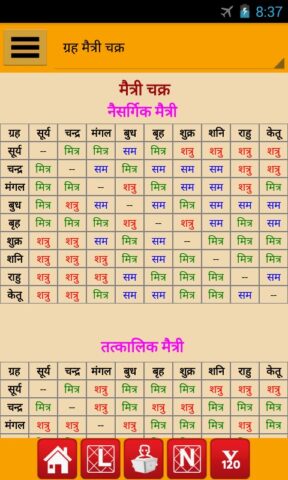 8:37
ग्रह मैत्री चक्र
मैत्री चक्र
नैसर्गिक मैत्री
ग्रह सूर्य चन्द्र मंगल बुध बृह शुक्र शनि राहु केतू
सूर्य -- मित्र मित्र सम मित्र शत्रु शत्रु शत्रु शत्रु
चन्द्र मित्र -- सम मित्र सम सम सम शत्रु शत्रु
मंगल मित्र मित्र -- शत्रु मित्र सम सम शत्रु मित्र
बुध मित्र शत्रु सम -- सम मित्र सम सम सम
बृह मित्र मित्र मित्र शत्रु -- शत्रु सम मित्र सम
शुक्र शत्रु शत्रु सम मित्र सम -- मित्र मित्र मित्र
शनि शत्रु शत्रु शत्रु मित्र सम मित्र -- मित्र मित्र
राहु शत्रु शत्रु शत्रु सम मित्र मित्र मित्र -- सम
केतू शत्रु शत्रु मित्र सम सम मित्र मित्र सम --
तत्कालिक मैत्री
ग्रह सूर्य चन्द्र मंगल बुध बृह शुक्र शनि राहु केतू
सूर्य -- मित्र शत्रु मित्र मित्र मित्र शत्रु मित्र शत्रु
चन्द्र मित्र -- मित्र मित्र शत्रु शत्रु शत्रु मित्र मित्र
मंगल शत्रु मित्र -- मित्र मित्र मित्र शत्रु मित्र शत्रु
L N Y
120